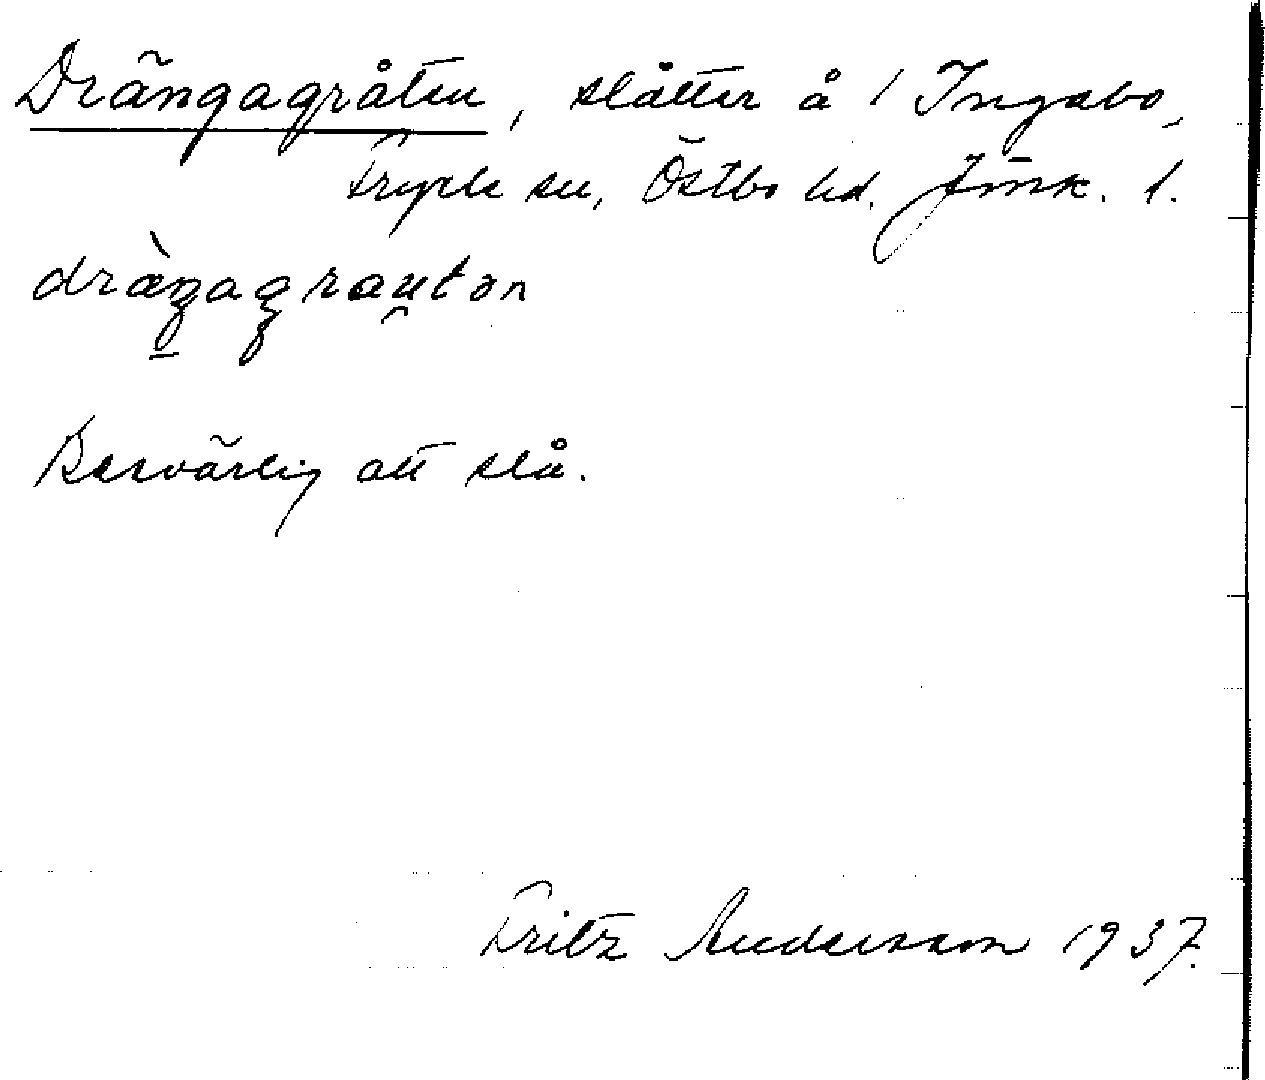 Drängagråten, slåtter å 1 Ingabo,
Fryele sn, Östbo hd. Jönk. l.
dràŋagraut
Besvärlig att slå.
Fritz Andersson 1937.